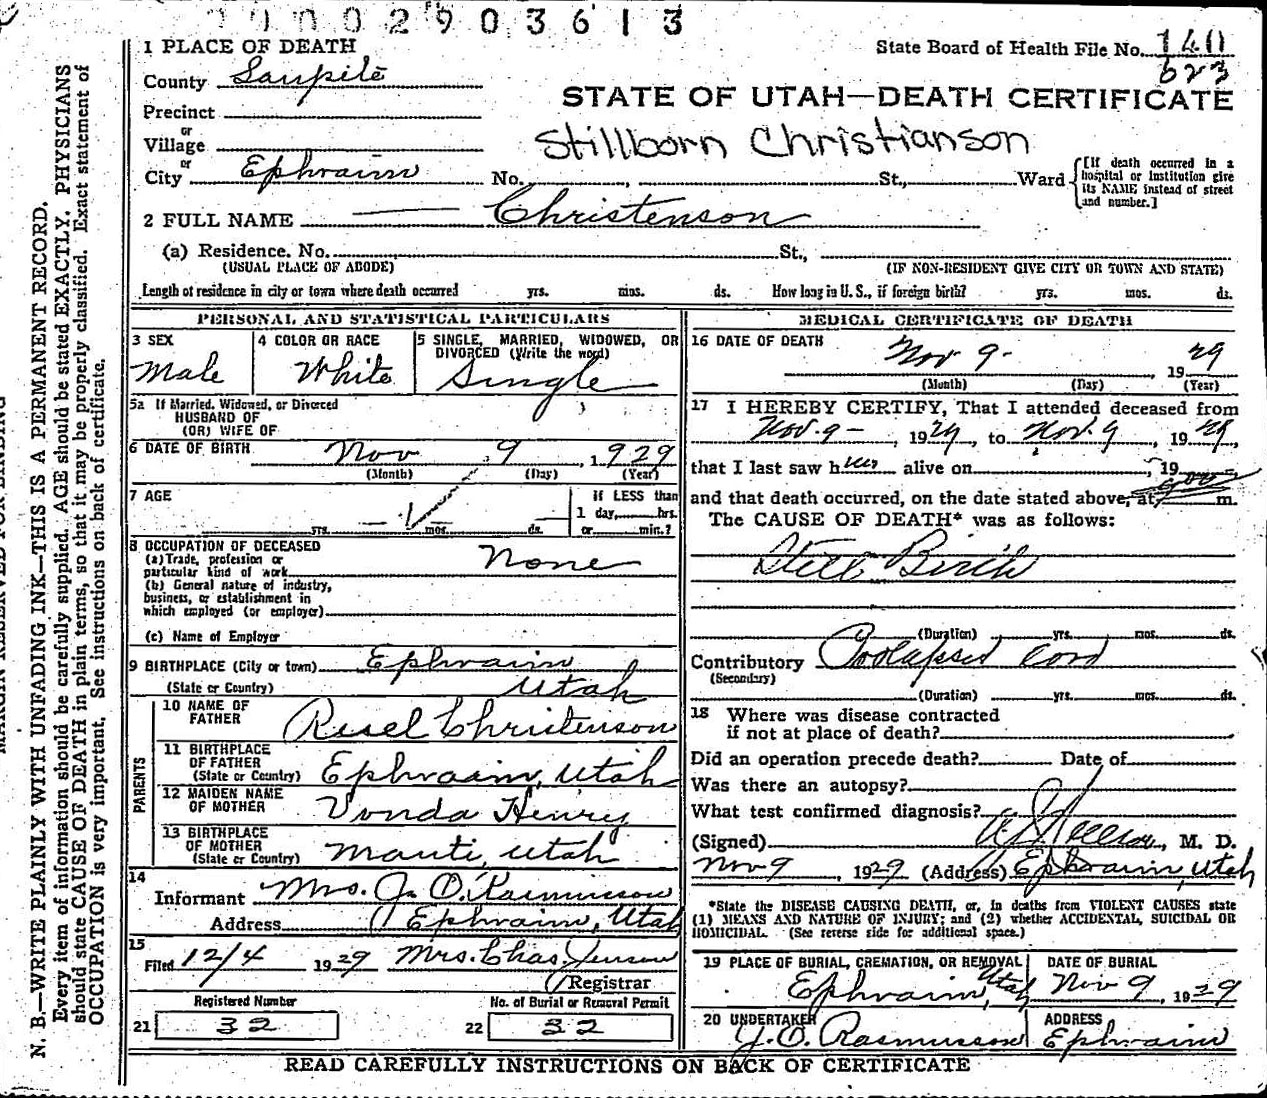 2 9 0 3 6 1 3
1 PLACE OF DEATH
State Board of Health File No. 140
623
County Sanpete
STATE OF UTAH—DEATH CERTIFICATE
Precinct
or
Village
Stillborn Christianson
or
City Ephraim No. , St., Ward
[If death occurred in a hospital or institution give its NAME instead of street and number.]
2 FULL NAME Christenson
(a) Residence. No. St.,
(USUAL PLACE OF ABODE) (IF NON-RESIDENT GIVE CITY OR TOWN AND STATE)
Length of residence in city or town where death occurred yrs. mos. ds. How long in U. S., if foreign birth? yrs. mos. ds.
PERSONAL AND STATISTICAL PARTICULARS
3 SEX
Male
4 COLOR OR RACE
White
5 SINGLE, MARRIED, WIDOWED, OR
DIVORCED (Write the word)
Single
5a If Married, Widowed, or Divorced
HUSBAND OF
(OR) WIFE OF
6 DATE OF BIRTH Nov 9, 1929
(Month) (Day) (Year)
7 AGE
yrs. mos. ds.
If LESS than
1 day, hrs.
or min.?
8 OCCUPATION OF DECEASED
(a) Trade, profession or
particular kind of work None
(b) General nature of industry,
business, or establishment in
which employed (or employer)
(c) Name of Employer
9 BIRTHPLACE (City or town) Ephraim
(State or Country) Utah
PARENTS
10 NAME OF
FATHER Ruel Christenson
11 BIRTHPLACE
OF FATHER
(State or Country) Ephraim, Utah
12 MAIDEN NAME
OF MOTHER Vonda Henry
13 BIRTHPLACE
OF MOTHER
(State or Country) Manti, Utah
14
Informant Mrs. J. O. Rasmusson
Address Ephraim, Utah
15
Filed 12/4 1929 Mrs. Chas. Jensen
Registrar
Registered Number No. of Burial or Removal Permit
21 32 22 32
MEDICAL CERTIFICATE OF DEATH
16 DATE OF DEATH
Nov 9 - 1929
(Month) (Day) (Year)
17 I HEREBY CERTIFY, That I attended deceased from
Nov. 9 -, 1929, to Nov. 9, 1929,
that I last saw h alive on , 19
and that death occurred, on the date stated above, at m.
The CAUSE OF DEATH* was as follows:
Still Birth
(Duration) yrs. mos. ds.
Contributory Prolapsed Cord
(Secondary)
(Duration) yrs. mos. ds.
18 Where was disease contracted
if not at place of death?
Did an operation precede death? Date of
Was there an autopsy?
What test confirmed diagnosis?
(Signed) , M. D.
Nov 9, 1929 (Address) Ephraim, Utah
*State the DISEASE CAUSING DEATH, or, in deaths from VIOLENT CAUSES state
(1) MEANS AND NATURE OF INJURY; and (2) whether ACCIDENTAL, SUICIDAL OR
HOMICIDAL. (See reverse side for additional space.)
19 PLACE OF BURIAL, CREMATION, OR REMOVAL
Ephraim, Utah
DATE OF BURIAL
Nov 9, 1929
20 UNDERTAKER
J. O. Rasmusson
ADDRESS
Ephraim
READ CAREFULLY INSTRUCTIONS ON BACK OF CERTIFICATE
MARGIN RESERVED FOR BINDING
N. B.—WRITE PLAINLY WITH UNFADING INK—THIS IS A PERMANENT RECORD.
Every item of information should be carefully supplied. AGE should be stated EXACTLY. PHYSICIANS
should state CAUSE OF DEATH in plain terms, so that it may be properly classified. Exact statement of
OCCUPATION is very important. See instructions on back of certificate.